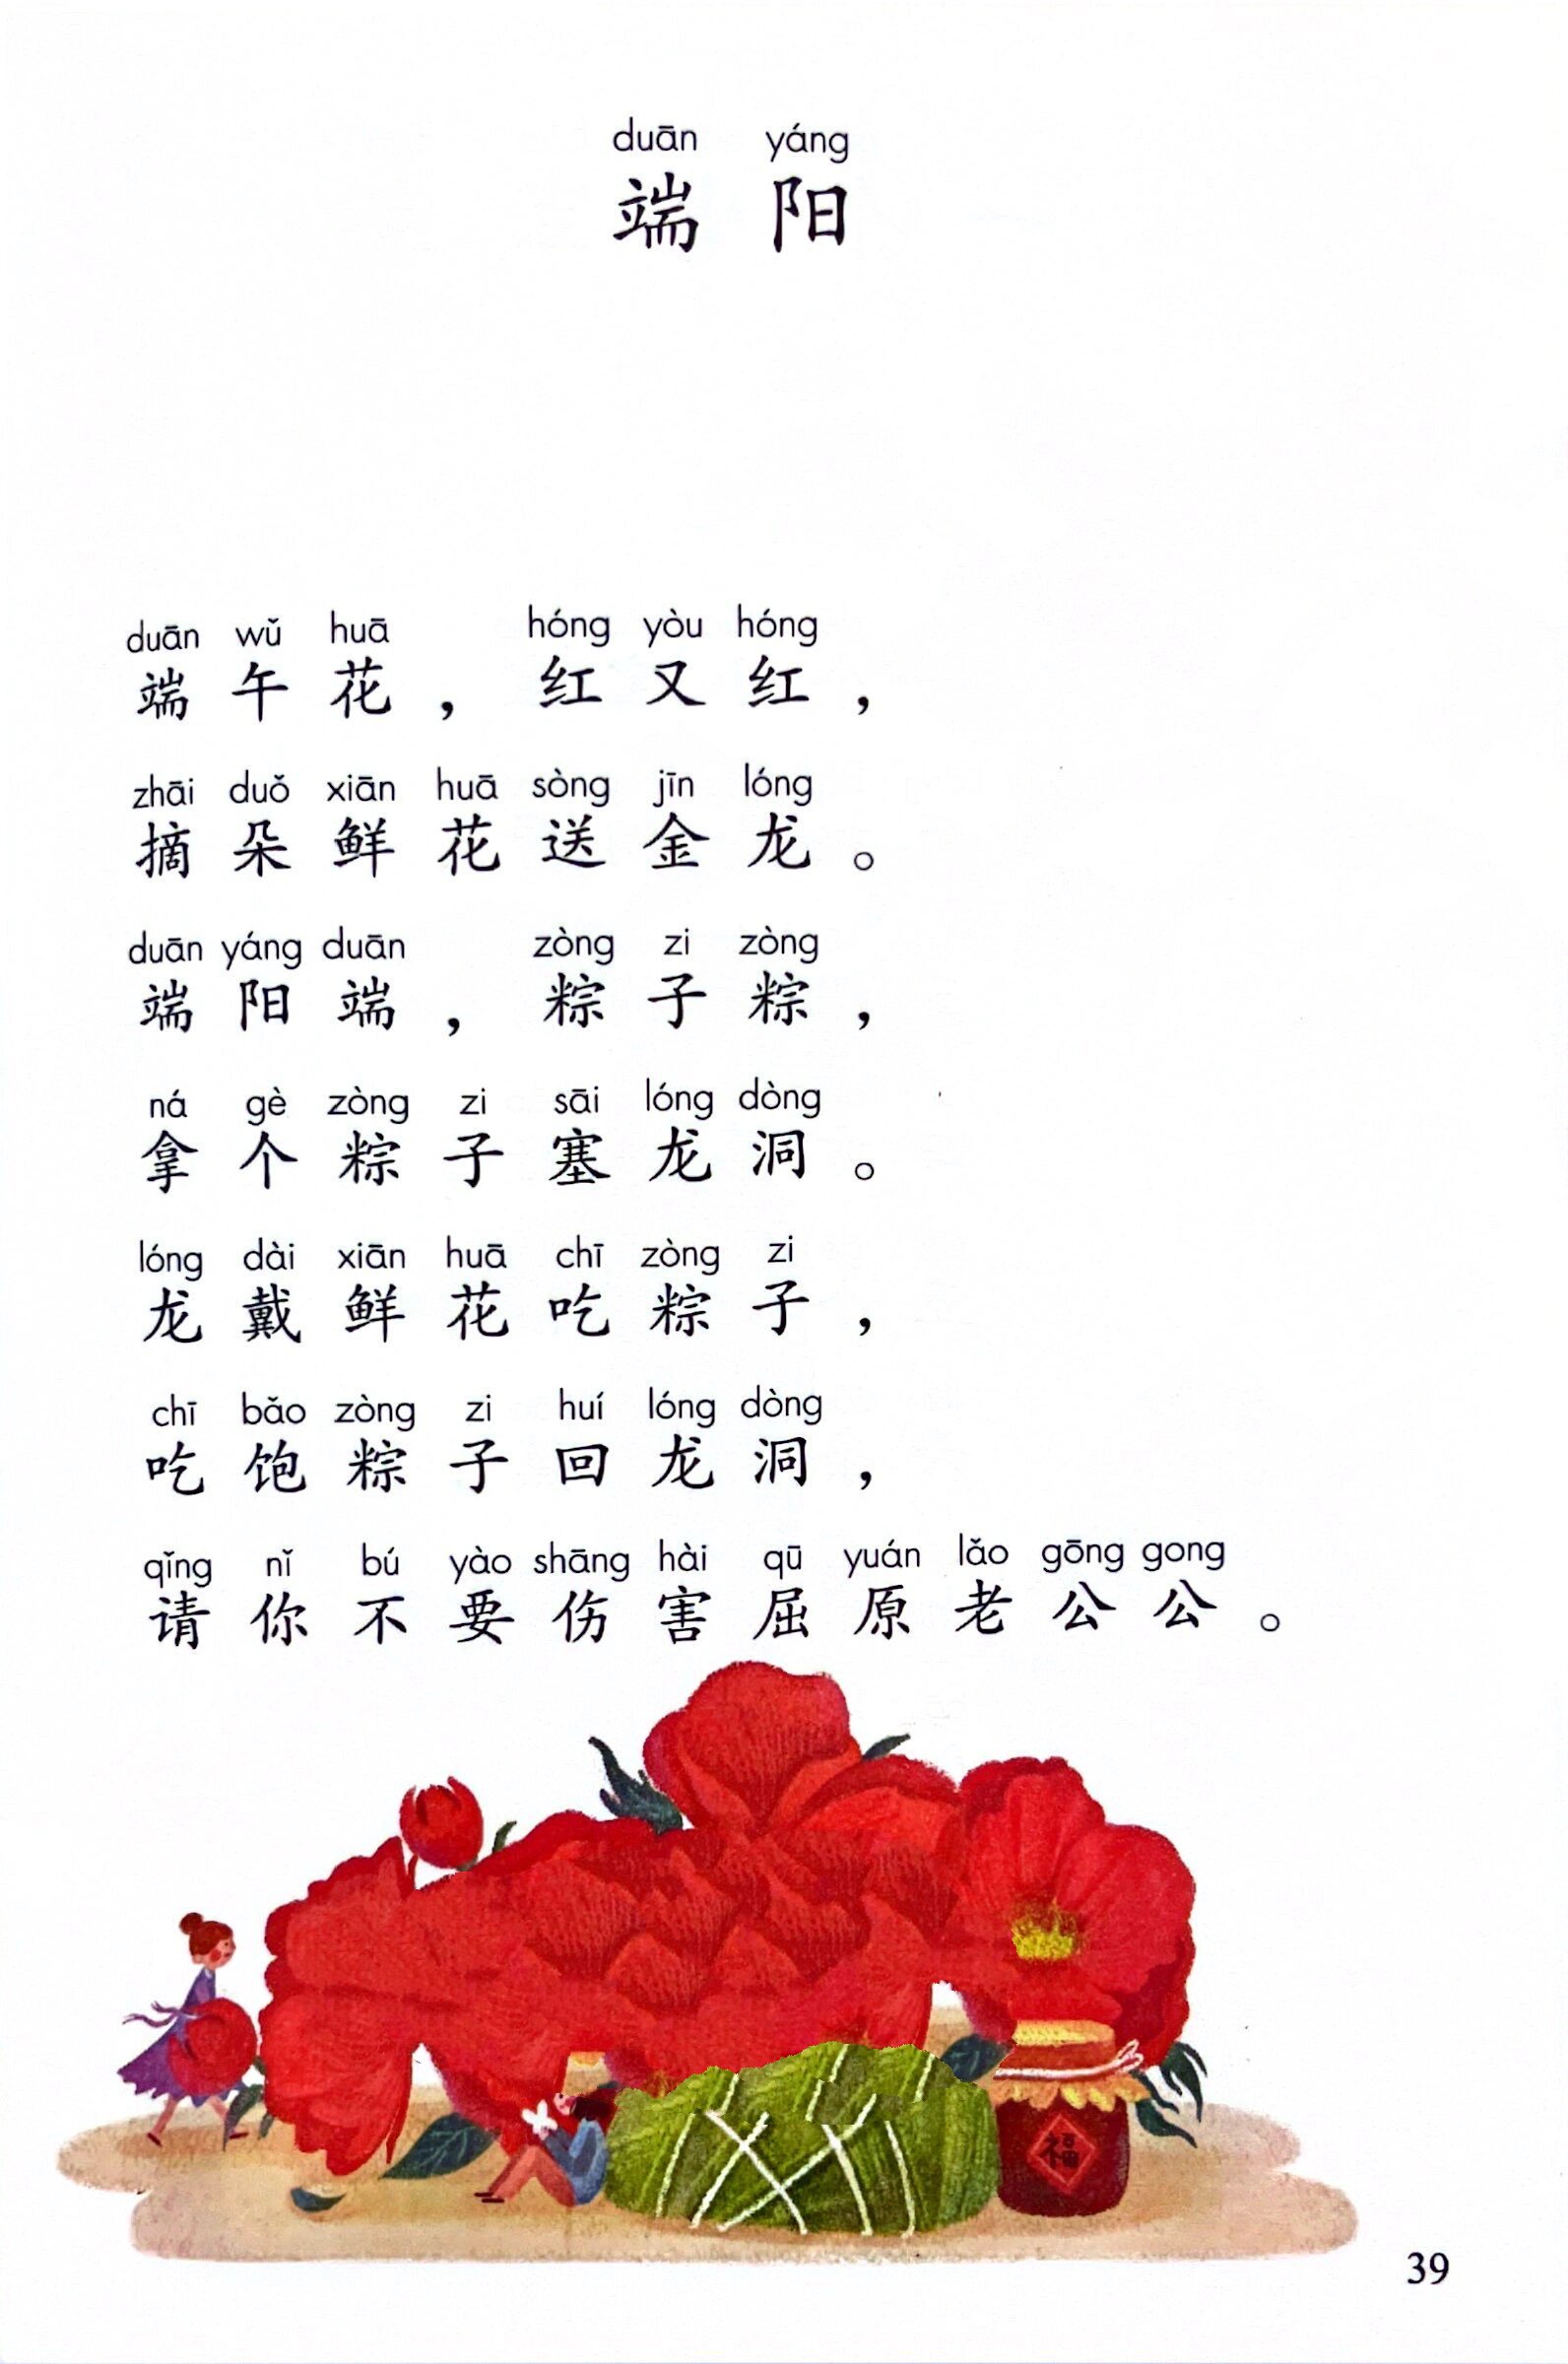 duān yáng
端阳
duān wǔ huā hóng yòu hóng
端午花，红又红，
zhāi duǒ xiān huā sòng jīn lóng
摘朵鲜花送金龙。
duān yáng duān zòng zi zòng
端阳端，粽子粽，
ná gè zòng zi sāi lóng dòng
拿个粽子塞龙洞。
lóng dài xiān huā chī zòng zi
龙戴鲜花吃粽子，
chī bǎo zòng zi huí lóng dòng
吃饱粽子回龙洞，
qǐng nǐ bú yào shāng hài qū yuán lǎo gōng gong
请你不要伤害屈原老公公。
福
39